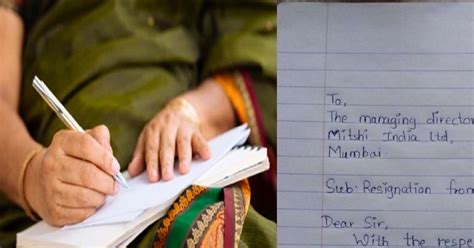 To,
The managing director
Mitshi India Ltd,
Mumbai.
Sub: Resignation from
Dear Sir,
With the resp